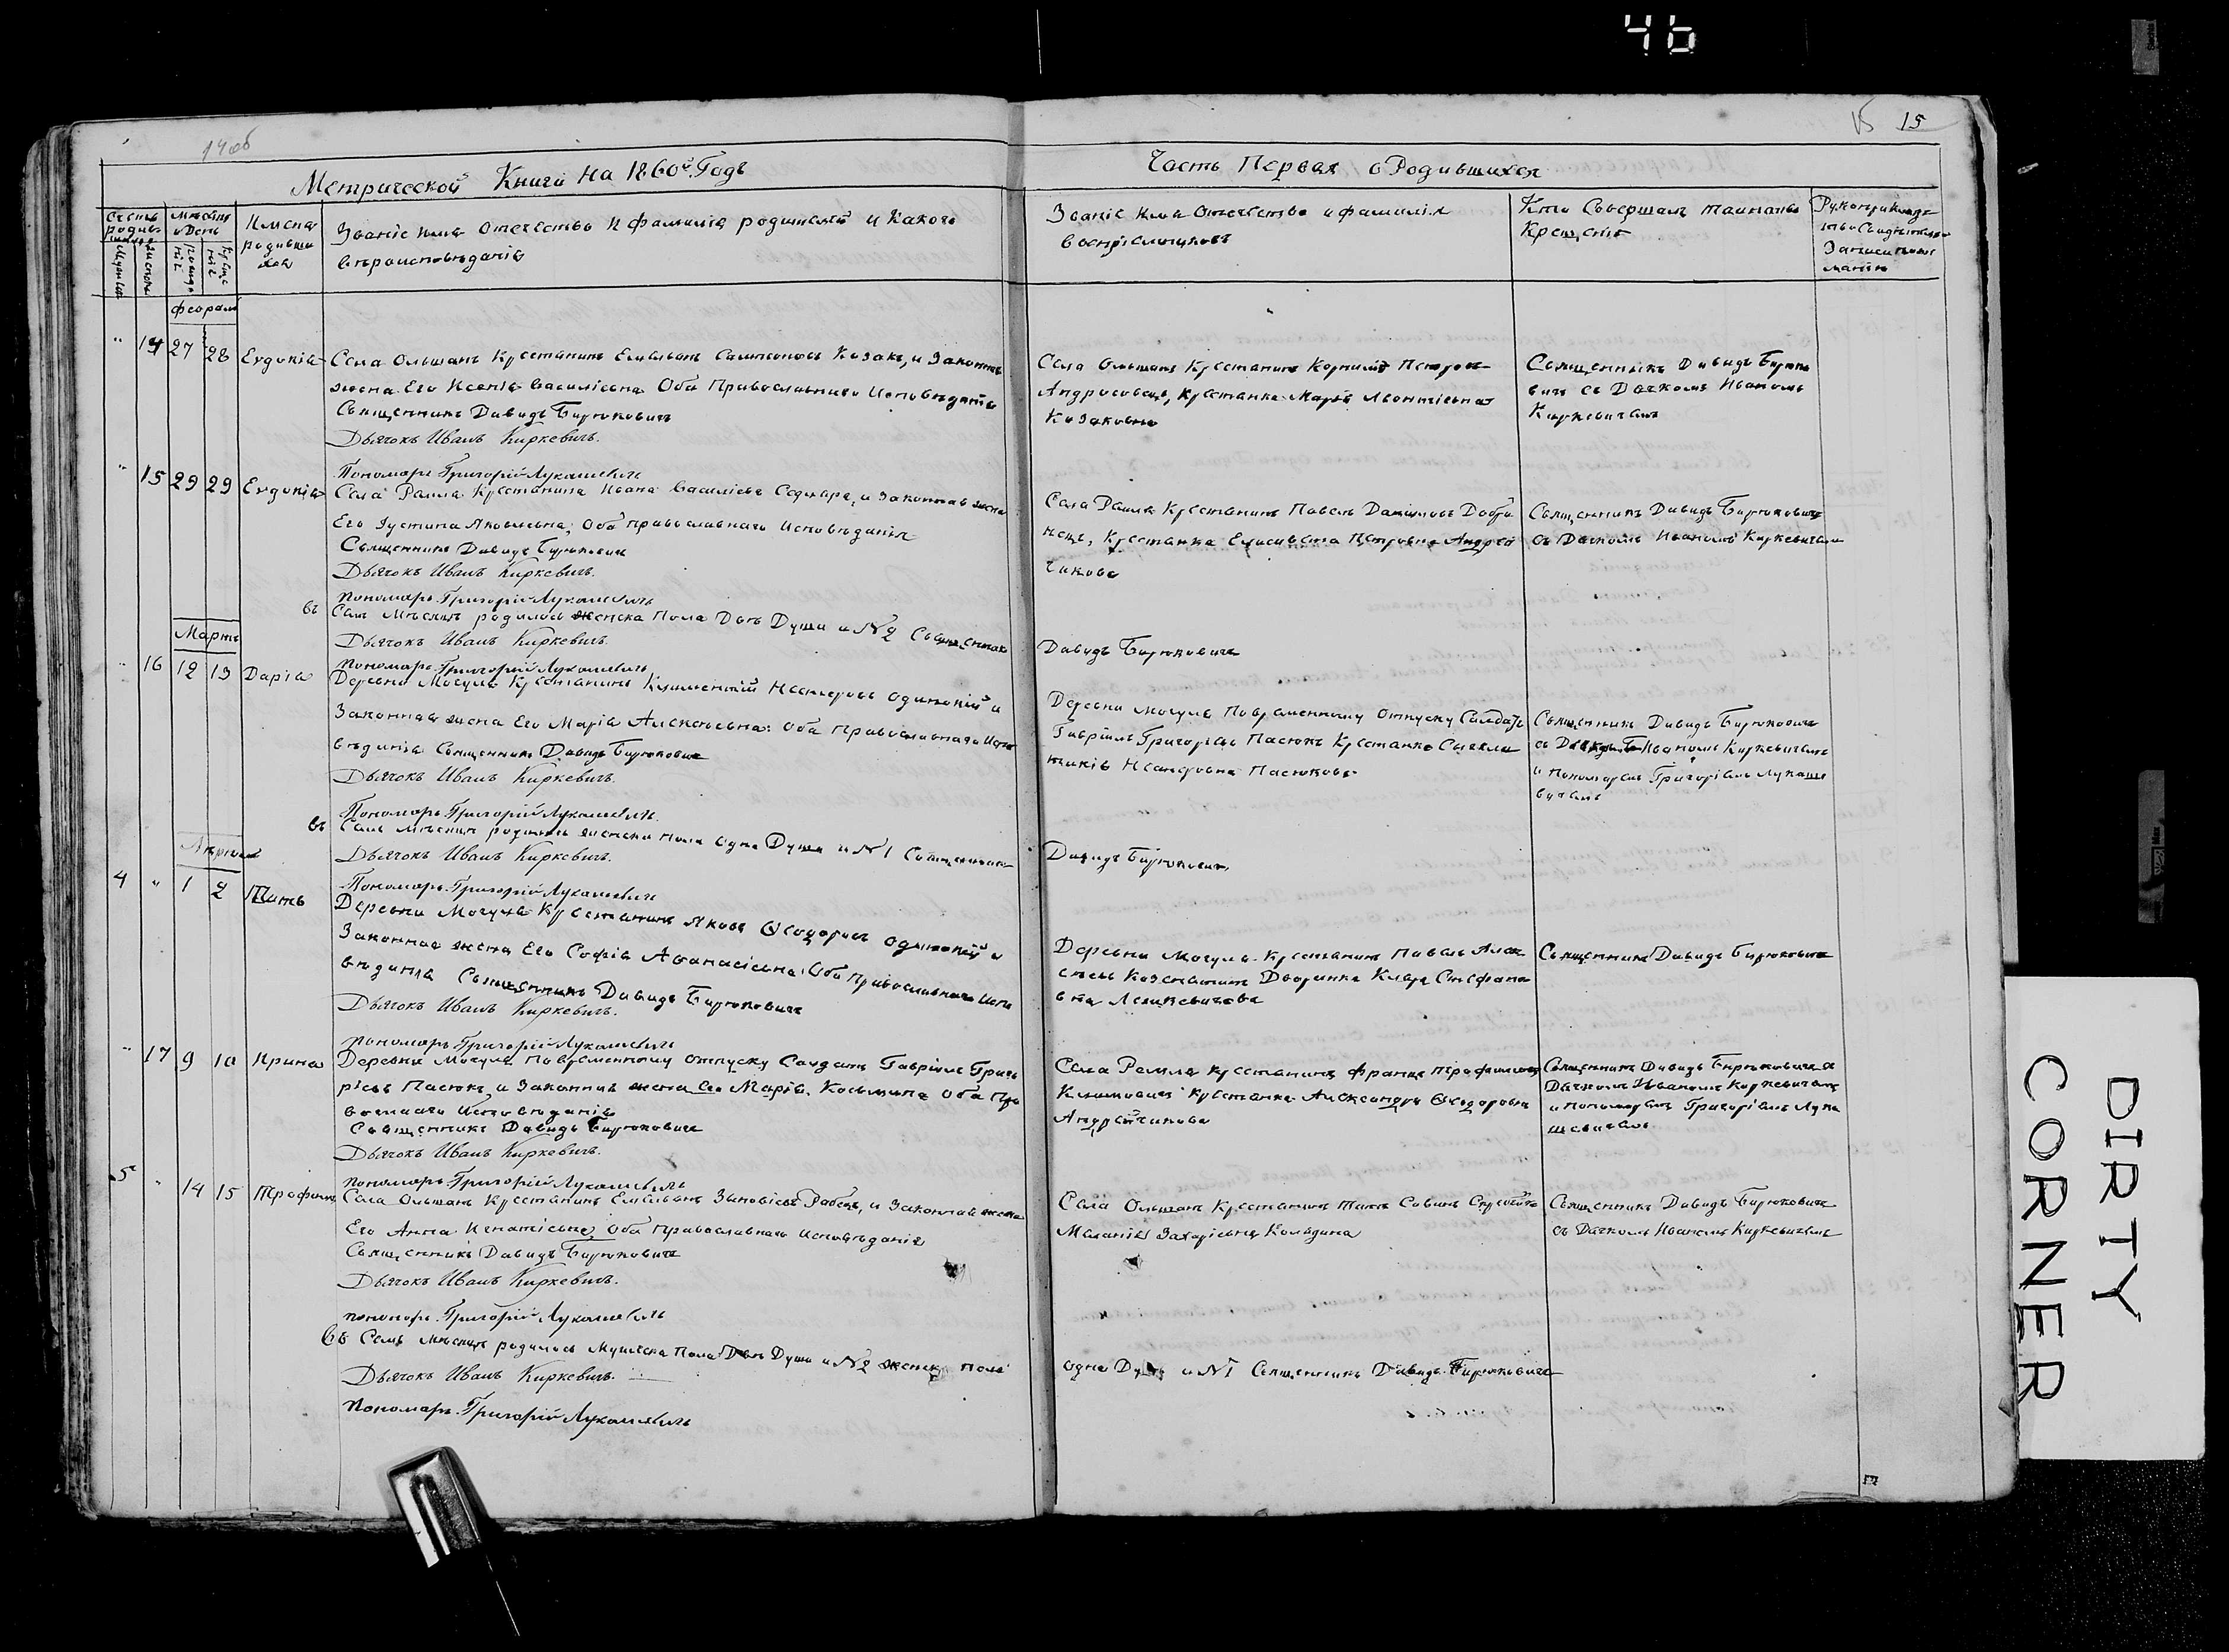 46
14об
15 15
Метрической Книги на 1860й Годъ
Часть Первая о Родившихся
Счетъ родив-
шихся
Мужеска
Женска
Мѣсяцъ
и День
рожде
нія
креще
нія
Имена
родивши
хся
Званіе имя Отечество и фамилія родителей и Какого
вѣроисповѣданія
Званіе имя Отечество и фамилія
воспріемниковъ
Кто Совершалъ таинство
Крещенія
Рукоприклад-
ство Свидѣтелей
Записи по
желанію
Февраля
" 14 27 28 Евдокія
Села Ольшанъ Крестьянинъ Емельянъ Самсоновъ Козакъ, и Законная
жена Его Ксенія Василіевна Оба Православнаго Исповѣданія
Священникъ Давидъ Бирюковичъ
Дьячокъ Иванъ Киркевичъ.
Пономарь Григорій Лукашевичъ
Села Ольшанъ Крестьянинъ Корнилій Петровъ
Андросовецъ, Крестьянка Марія Леонтіевна
Козаковна
Священникъ Давидъ Бирюко
вичъ съ Дьячкомъ Иваномъ
Киркевичемъ
" 15 29 29 Евдокія
Села Рамля Крестьянина Ивана Василіева Седляра, и Законная жена
Его Іустина Яковлевна, Оба православнаго Исповѣданія
Священникъ Давидъ Бирюковичъ
Дьячокъ Иванъ Киркевичъ.
пономарь Григорій Лукашевичъ
Села Рамля Крестьянинъ Павелъ Даниловъ
нецъ, Крестьянка Елисавета Петровна Андрей
чикова
Священникъ Давидъ Бирюковичъ
съ Дьячкомъ Иваномъ Киркевичемъ
въ Семъ Мѣсяцѣ родилось женска Пола Двѣ Души и № 2 Священникъ
Давидъ Бирюковичъ
Дьячокъ Иванъ Киркевичъ.
пономарь Григорій Лукашевичъ
Мартъ
" 16 12 13 Дарія
Деревни Могуля Крестьянинъ Климентій Нестеровъ Одинокій и
Законная жена Его Марія Алексѣевна: Оба Православнаго Испо
вѣданія Священникъ Давидъ Бирюковичъ
Дьячокъ Иванъ Киркевичъ.
Пономарь Григорій Лукашевичъ
Деревни Могуля Повременному отпуску Солдатъ
Гавріилъ Григоріевъ Пасюкъ Крестьянка Сыгкли
тикія Несторовна Пасюкова
Священникъ Давидъ Бирюковичъ
съ Иваномъ Киркевичемъ
и пономаремъ Григоріемъ Лукаше
вичемъ
въ Семъ мѣсяцѣ родилось женска пола Одна Душа и № 1 Священникъ
Давидъ Бирюковичъ
Дьячокъ Иванъ Киркевичъ.
Пономарь Григорій Лукашевичъ
Апрель
4 " 1 2 Титъ
Деревни Могуля Крестьянинъ Яковъ Ѳеодоровъ Одинокій и
Законная жена Его Софія Аѳанасіевна: Оба Православнаго Испо
вѣданія Священникъ Давидъ Бирюковичъ
Дьячокъ Иванъ Киркевичъ.
пономарь Григорій Лукашевичъ
Деревни Могуля Крестьянинъ Павелъ Алек
сѣевъ Дворянка Клара Стефано
вна
Священникъ Давидъ Бирюковичъ
" 17 9 10 Ирина
Деревни Могуля Повременному отпуску Солдатъ Гавріилъ Григо
ріевъ Пасюкъ, и Законная жена Его Марія Косьмина Оба Пра
вославнаго Исповѣданія
Священникъ Давидъ Бирюковичъ
Дьячокъ Иванъ Киркевичъ.
пономарь Григорій Лукашевичъ
Села Рамля крестьянинъ Францъ Трофимовъ
Климовичъ крестьянка Александра Ѳеодоровна
Андрейчикова
Священникъ Давидъ Бирюковичъ съ
Дьячкомъ Иваномъ Киркевичемъ
и пономаремъ Григоріемъ Лука
шевичемъ
5 " 14 15 Трофимъ
Села Ольшанъ Крестьянинъ Емельянъ Зиновіевъ Рабецъ, и Законная жена
Его Анна Игнатіевна, Оба Православнаго Исповѣданія
Священникъ Давидъ Бирюковичъ
Дьячокъ Иванъ Киркевичъ.
пономарь Григорій Лукашевичъ
Села Ольшанъ Крестьянинъ Титъ Савинъ
Маланія Захаріевна Колядина
Священникъ Давидъ Бирюковичъ
съ Дьячкомъ Иваномъ Киркевичемъ
Въ Семъ Мѣсяцѣ родилось Мужеска Пола Двѣ Души и № 2 женска пола
одна Душа и № 1 Священникъ Давидъ Бирюковичъ
Дьячокъ Иванъ Киркевичъ.
Пономарь Григорій Лукашевичъ
DIRTY
CORNER